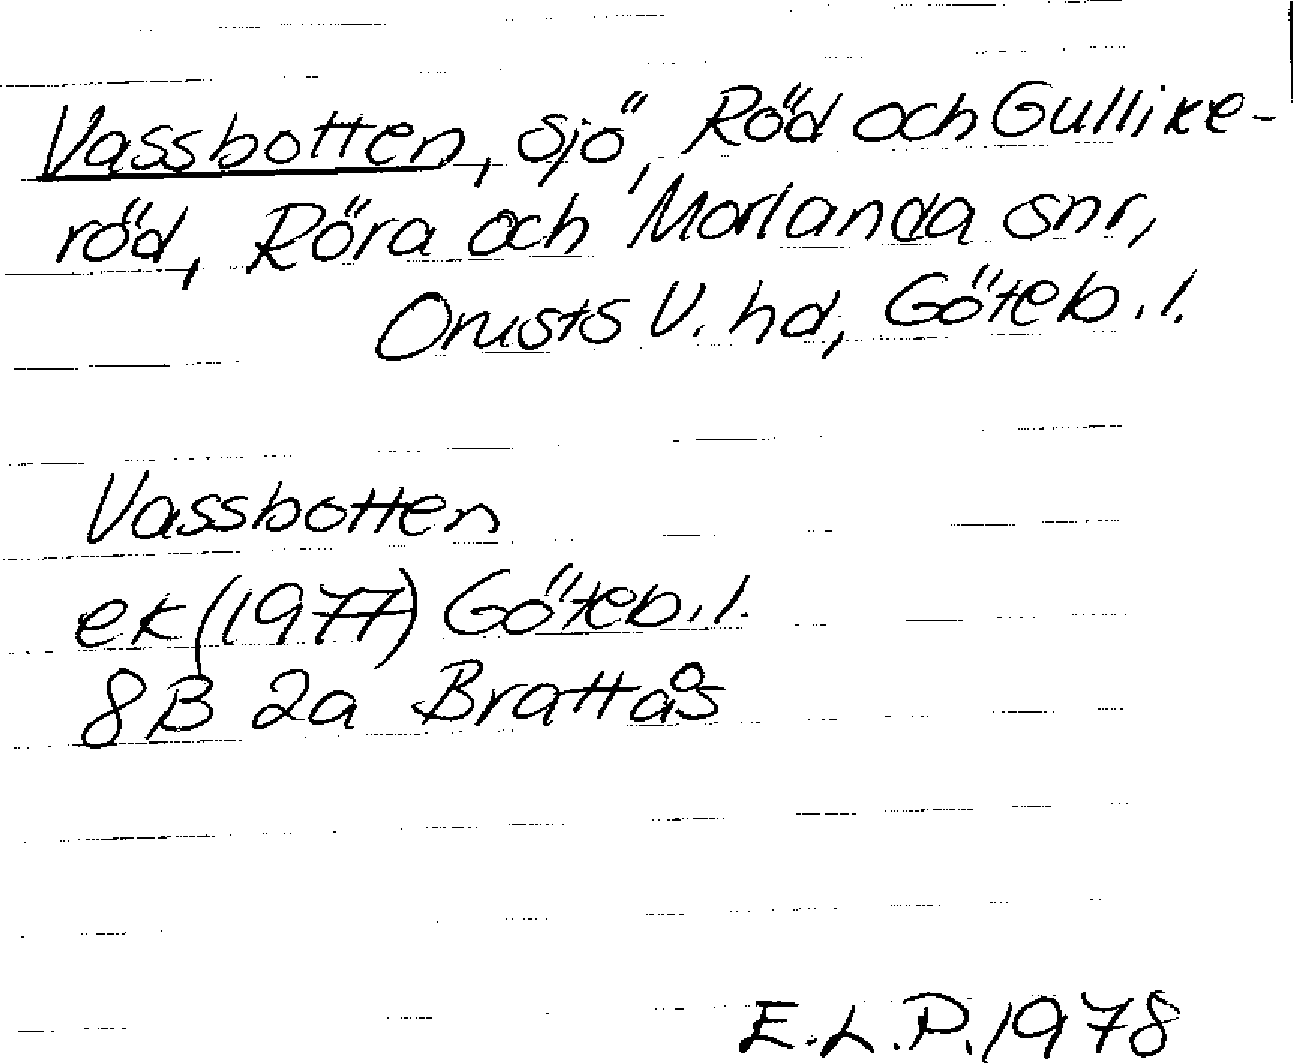 Vassbotten, sjö, Röd och Gullike-
röd, Röra och Morlanda snr,
Orusts V. hd, Göteb.l.
Vassbotten
ek (1977) Göteb.l.
8B 2a Brattås
E.L.P. 1978